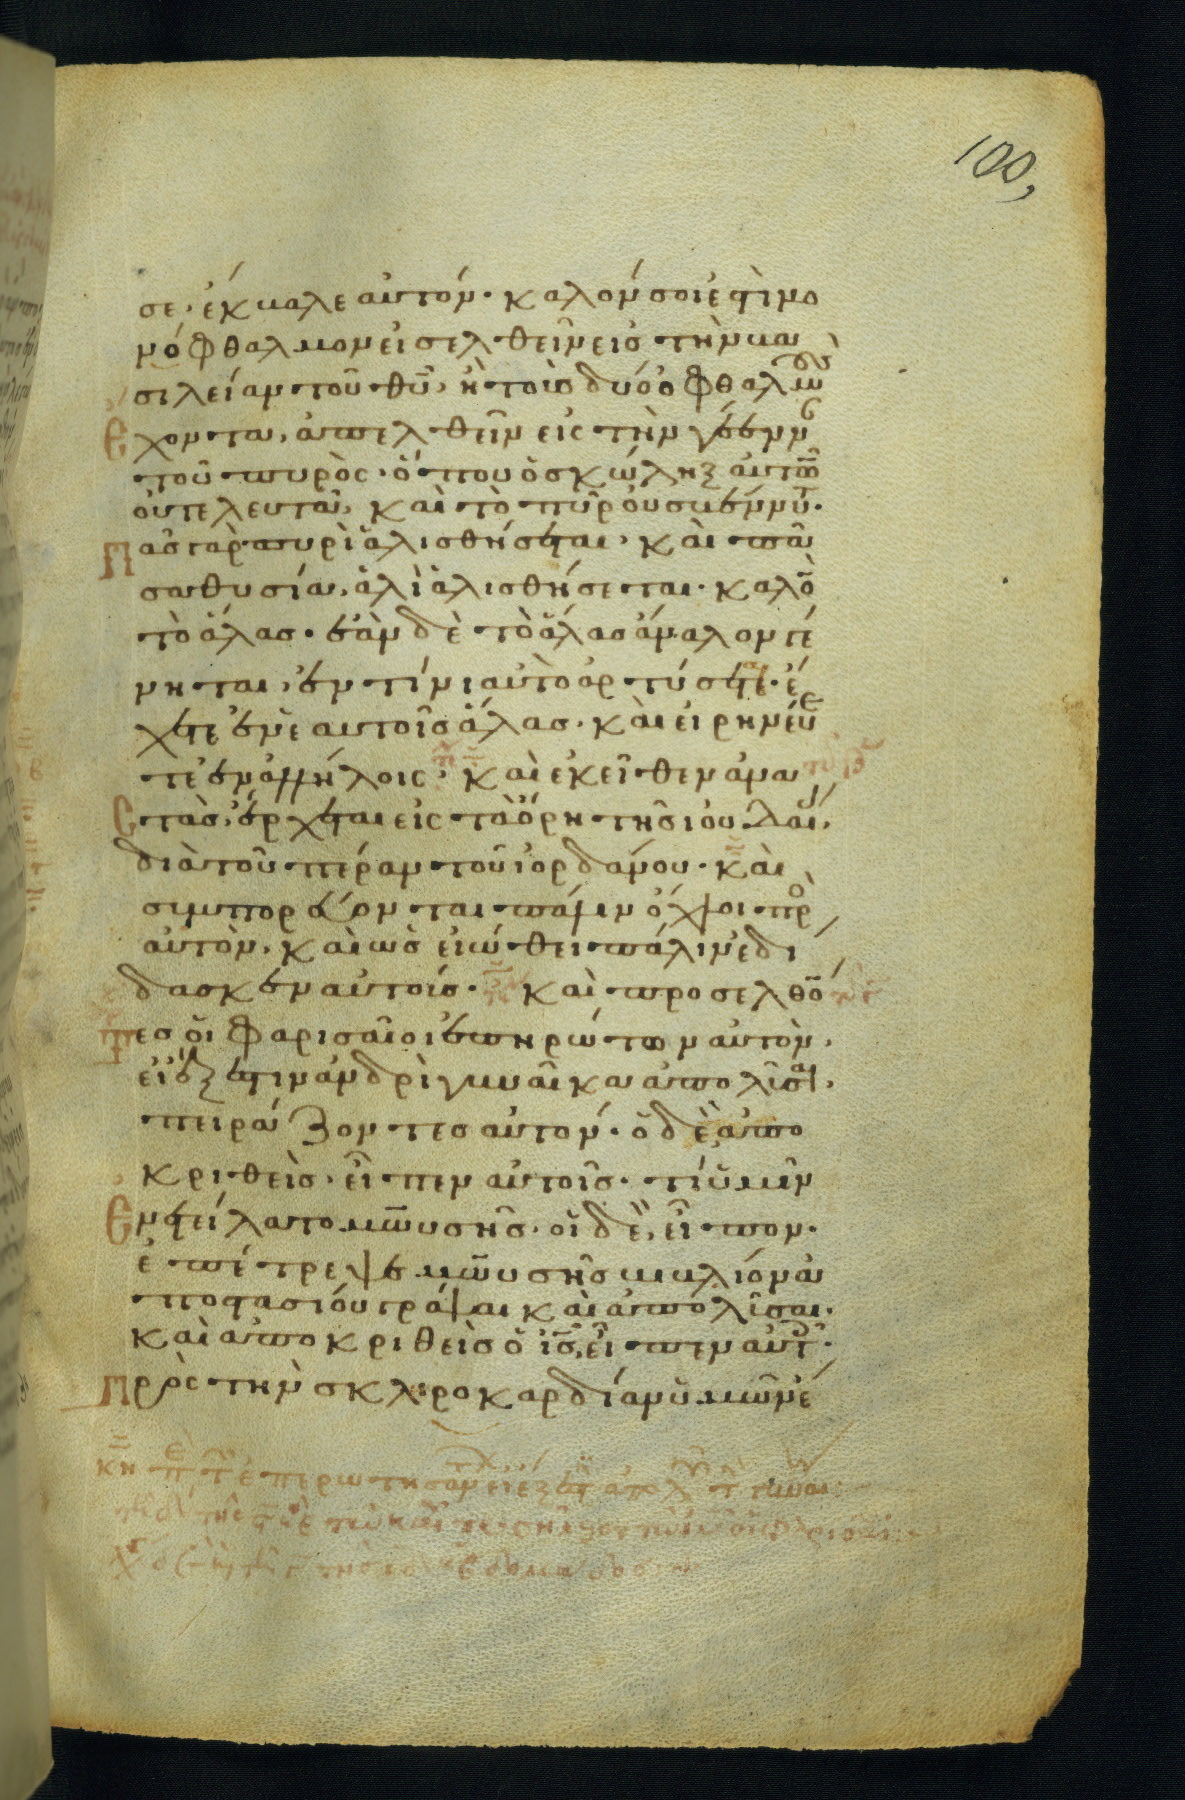 100,
σε· ἔκβαλε αὐτόν· καλόν σοι ἐστὶ μο
νόφθαλμον εἰσελθεῖν εἰς τὴν βα
σιλείαν τοῦ θῦ, ἢ τοὺς δύο ὀφθαλμοὺς
ἔχοντα, ἀπελθεῖν εἰς τὴν γέενν
τοῦ πυρὸς· ὅπου ὁ σκώληξ αυτῶν
οὐ τελευτᾶ, καὶ τὸ πῦρ οὐ σβέννυτ·
Πας γὰρ πυρὶ ἁλισθήσεται· καὶ πᾶ
σα θυσία, ἁλὶ ἁλισθήσεται· καλὸ
τὸ ἅλας· ἐὰν δὲ τὸ ἅλας ἄναλον γέ
νηται, ἐν τίνι αὐτὸ ἀρτύσεται· ἔ
χετε ἐν ἑαυτοῖς ἅλας· καὶ εἰρηνεύε
τε ἐν ἀλλήλοις· καὶ ἐκεῖθεν ἀνα
στὰς, ἔρχεται εἰς τὰ ὄρη τῆς ἰουδαί,
διὰ τοῦ πέραν τοῦ ἰορδάνου· καὶ
συμπορεύονται πάλιν ὄχλοι πρ
αὐτὸν, καὶ ὡς εἰώθει πάλιν ἐδί
δασκεν αὐτούς· καὶ προσελθό
ντες οἱ φαρισαῖοι ἐπηρώτων αὐτὸν,
εἰ ἔξεστιν ἀνδρὶ γυναῖκα ἀπολῦσαι,
πειράζοντες αὐτόν· ὁ δὲ ἀπο
κριθεὶς, εἶπεν αὐτοῖς· τί ὑμῖν
ἐνετείλατο μωϋσῆς· οἱ δὲ, εἶπον·
ἐπέτρεψε μωϋσῆς βιβλίον ἀ
ποστασίου γράψαι καὶ ἀπολῦσαι·
καὶ ἀποκριθεὶς ὁ ις, εἶπεν αὐτ·
Πρὸς τὴν σκληροκαρδίαν ὑμῶν ἔ